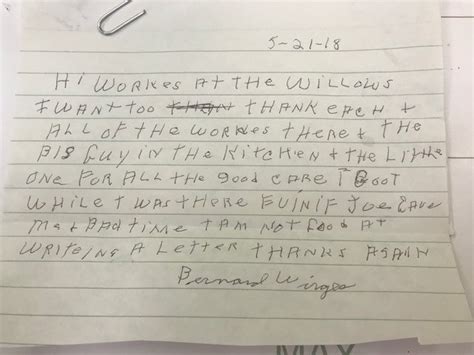 5-21-18
Hi WORKES AT THE WILLOWS
I WANT TOO THANK EACH +
ALL OF THE WORKES THERE + THE
BIG GUY IN THE KITCHEN + THE LITTLE
ONE FOR ALL THE good CARE I GOOT
WHILE I WAS THERE EVINIF JOE GAVE
ME A BAD TIME I AM NOT GOOD AT
WRITEING A LETTER THANKS AGAIN
Bernard